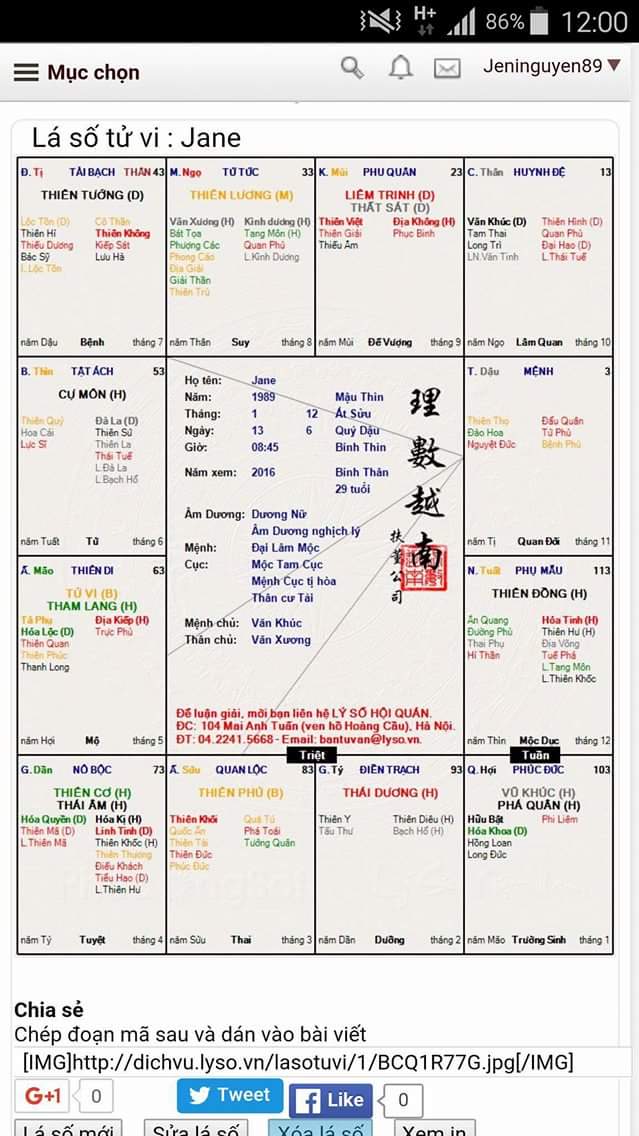 H+ 86% 12:00
Mục chọn Jeninguyen89
Lá số tử vi : Jane
Đ. Tị TÀI BẠCH THÂN 43
THIÊN TƯỚNG (D)
Lộc Tồn (D) Cô Thần
Thiên Hỉ Thiên Không
Thiếu Dương Kiếp Sát
Bác Sỹ Lưu Hà
L.Lộc Tồn
năm Dậu Bệnh tháng 7
M. Ngọ TỬ TỨC 33
THIÊN LƯƠNG (M)
Văn Xương (H) Kình dương (H)
Bát Tọa Tang Môn (H)
Phượng Các Quan Phủ
Phong Cáo L.Kình Dương
Địa Giải
Giải Thần
Thiên Trù
năm Thân Suy tháng 8
K. Mùi PHU QUÂN 23
LIÊM TRINH (D)
THẤT SÁT (D)
Thiên Việt Địa Không (H)
Thiên Giải Phục Binh
Thiếu Âm
năm Mùi Đế Vượng tháng 9
C. Thân HUYNH ĐỆ 13
Văn Khúc (D) Thiên Hình (D)
Tam Thai Quan Phù
Long Trì Đại Hao (D)
LN.Văn Tinh L.Thái Tuế
năm Ngọ Lâm Quan tháng 10
B. Thìn TẬT ÁCH 53
CỰ MÔN (H)
Thiên Quý Đà La (D)
Hoa Cái Thiên Sứ
Lực Sĩ Thiên La
Thái Tuế
L.Đà La
L.Bạch Hổ
năm Tuất Tử tháng 6
Họ tên: Jane
Năm: 1989 Mậu Thìn
Tháng: 1 12 Ất Sửu
Ngày: 13 6 Quý Dậu
Giờ: 08:45 Bính Thìn
Năm xem: 2016 Bính Thân
29 tuổi
Âm Dương: Dương Nữ
Âm Dương nghịch lý
Mệnh: Đại Lâm Mộc
Cục: Mộc Tam Cục
Mệnh Cục tị hòa
Thân cư Tài
Mệnh chủ: Văn Khúc
Thân chủ: Văn Xương
理數越南
扶董公司
Để luận giải, mời bạn liên hệ LÝ SỐ HỘI QUÁN.
ĐC: 104 Mai Anh Tuấn (ven hồ Hoàng Cầu), Hà Nội.
ĐT: 04.2241.5668 - Email: bantuvan@lyso.vn.
T. Dậu MỆNH 3
Thiên Thọ Đẩu Quân
Đào Hoa Tử Phù
Nguyệt Đức Bệnh Phù
năm Tị Quan Đới tháng 11
Ấ. Mão THIÊN DI 63
TỬ VI (B)
THAM LANG (H)
Tả Phụ Địa Kiếp (H)
Hóa Lộc (D) Trực Phù
Thiên Quan
Thiên Phúc
Thanh Long
năm Hợi Mộ tháng 5
N. Tuất PHỤ MẪU 113
THIÊN ĐỒNG (H)
Ân Quang Hỏa Tinh (H)
Đường Phù Thiên Hư (H)
Thai Phụ Địa Võng
Hỉ Thần Tuế Phá
L.Tang Môn
L.Thiên Khốc
năm Thìn Mộc Dục tháng 12
Triệt Tuần
G. Dần NÔ BỘC 73
THIÊN CƠ (H)
THÁI ÂM (H)
Hóa Quyền (D) Hóa Kị (H)
Thiên Mã (D) Linh Tinh (D)
L.Thiên Mã Thiên Khốc (H)
Thiên Thương
Điếu Khách
Tiểu Hao (D)
L.Thiên Hư
năm Tý Tuyệt tháng 4
Ấ. Sửu QUAN LỘC 83
THIÊN PHỦ (B)
Thiên Khôi Quả Tú
Quốc Ấn Phá Toái
Thiên Tài Tướng Quân
Thiên Đức
Phúc Đức
năm Sửu Thai tháng 3
G. Tý ĐIỀN TRẠCH 93
THÁI DƯƠNG (H)
Thiên Y Thiên Diêu (H)
Tấu Thư Bạch Hổ (H)
năm Dần Dưỡng tháng 2
Q. Hợi PHÚC ĐỨC 103
VŨ KHÚC (H)
PHÁ QUÂN (H)
Hữu Bật Phi Liêm
Hóa Khoa (D)
Hồng Loan
Long Đức
năm Mão Trường Sinh tháng 1
Chia sẻ
Chép đoạn mã sau và dán vào bài viết
[IMG]http://dichvu.lyso.vn/lasotuvi/1/BCQ1R77G.jpg[/IMG]
G+1 0 Tweet Like 0
Lá số mới Sửa lá số Xóa lá số Xem in